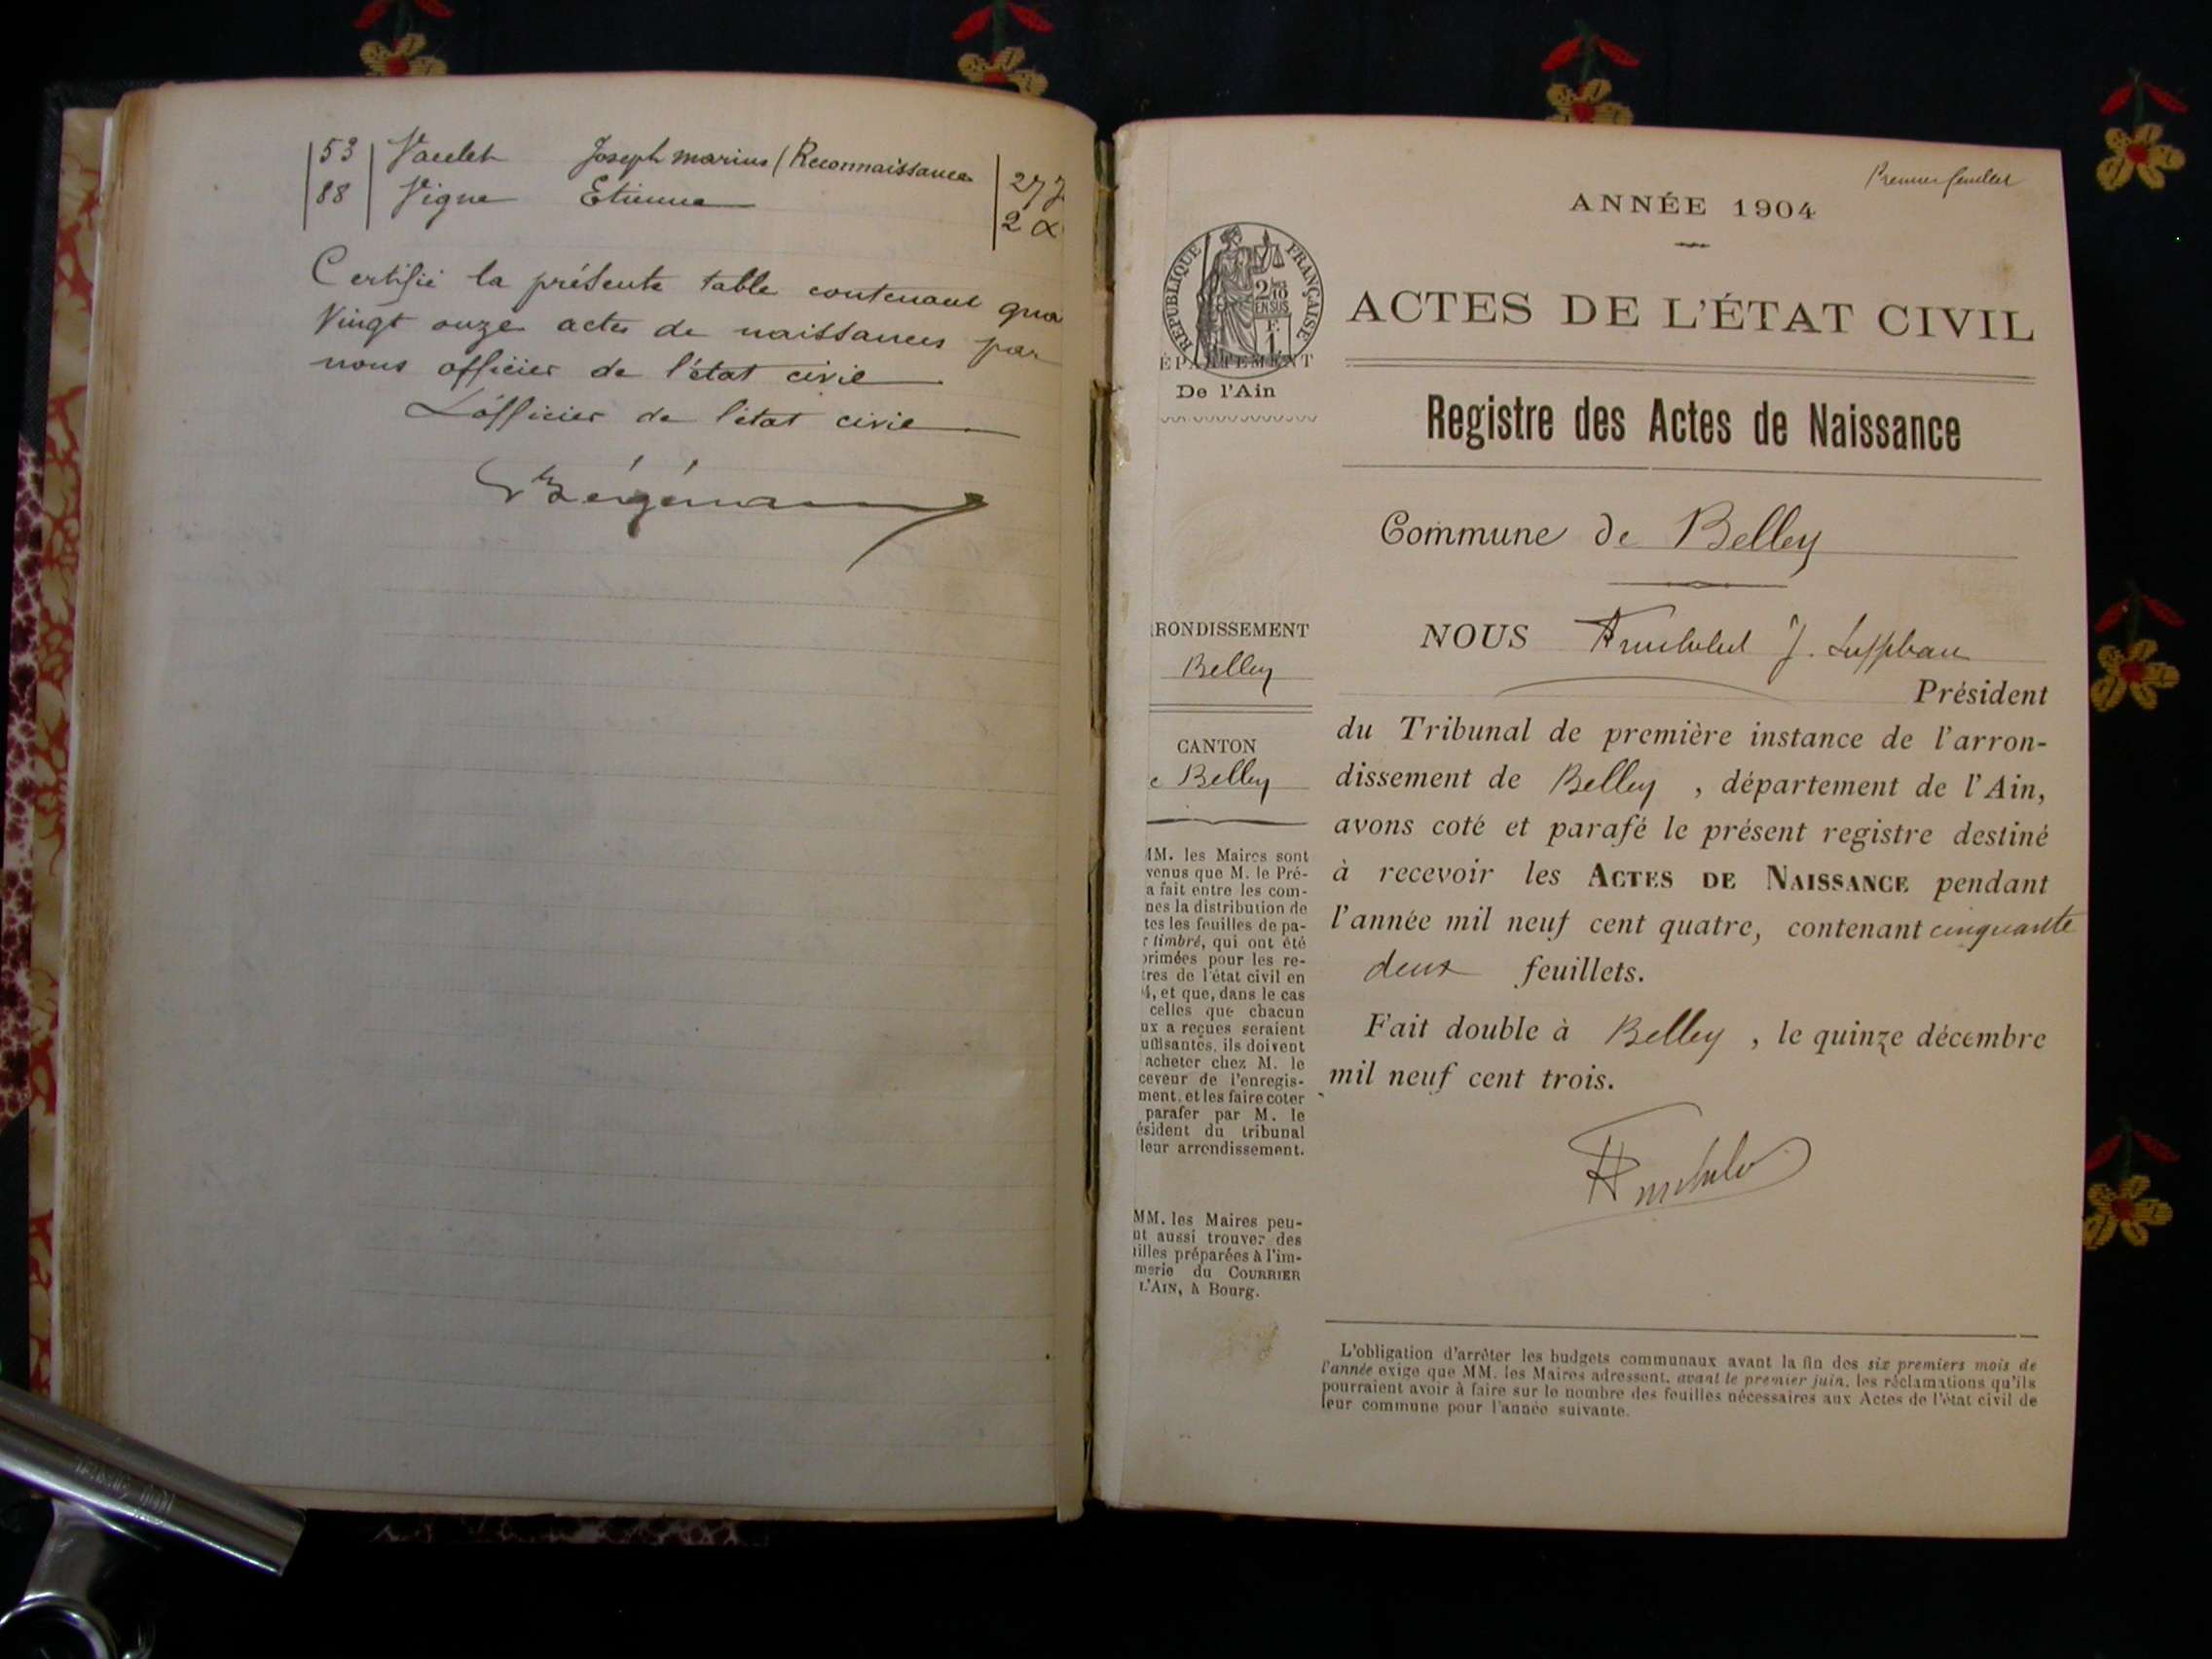 53 Vaulet Joseph marius (Reconnaissance 27 J
88 Vigne Etienne 2
Certifié la présente table contenant qua
Vingt onze actes de naissances par
nous officier de l'état civil
L'officier de l'état civil
Premier feuillet
ANNÉE 1904
RÉPUBLIQUE FRANÇAISE
2/10
EN SUS
F.
1
ACTES DE L'ÉTAT CIVIL
ÉPARTEMENT
De l'Ain
Registre des Actes de Naissance
Commune de Belley
RONDISSEMENT
Belley
CANTON
e Belley
MM. les Maires sont
venus que M. le Pré-
a fait entre les com-
nes la distribution de
tes les feuilles de pa-
r timbré, qui ont été
primées pour les re-
tres de l'état civil en
4, et que, dans le cas
celles que chacun
ux a reçues seraient
uffisantes, ils doivent
acheter chez M. le
ceveur de l'enregis-
ment, et les faire coter
parafer par M. le
ésident du tribunal
leur arrondissement.
MM. les Maires peu-
nt aussi trouver des
illes préparées à l'im-
merie du COURRIER
L'AIN, à Bourg.
NOUS
Président
du Tribunal de première instance de l'arron-
dissement de Belley , département de l'Ain,
avons coté et parafé le présent registre destiné
à recevoir les ACTES DE NAISSANCE pendant
l'année mil neuf cent quatre, contenant cinquante
deux feuillets.
Fait double à Belley , le quinze décembre
mil neuf cent trois.
L'obligation d'arrêter les budgets communaux avant la fin des six premiers mois de
l'année exige que MM. les Maires adressent, avant le premier juin, les réclamations qu'ils
pourraient avoir à faire sur le nombre des feuilles nécessaires aux Actes de l'état civil de
leur commune pour l'année suivante.